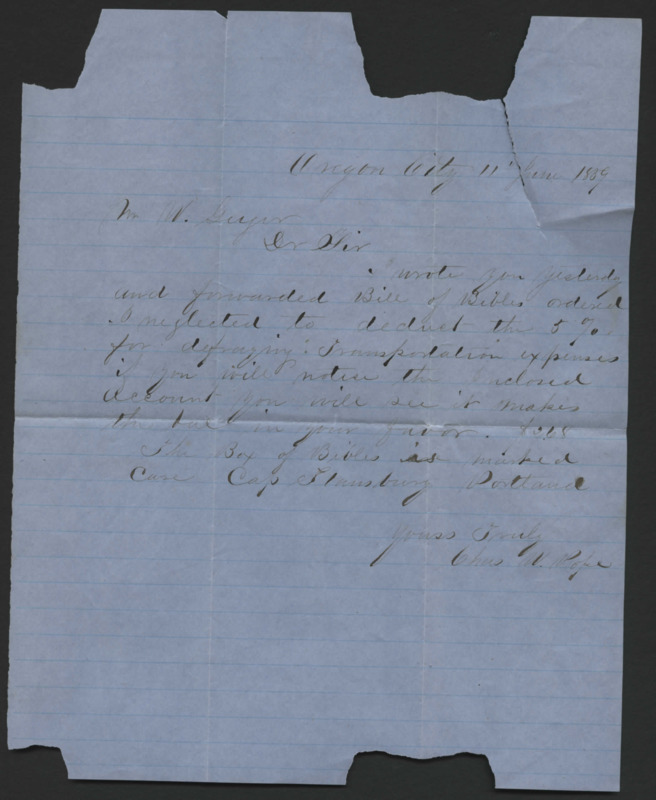 Oregon City 11 June 1859
Mr W. Geiger
Dr Sir
I wrote you yesterdy
and forwarded Bill of Bibles ordered
I neglected to deduct the 5 %
for defraying Transportation expenses
if you will notice the Enclosed
Account you will see it makes
the bal in your favor.
The Box of Bibles is marked
Care Cap Flansburg Portland
Yours Truly
Chas W. Pope